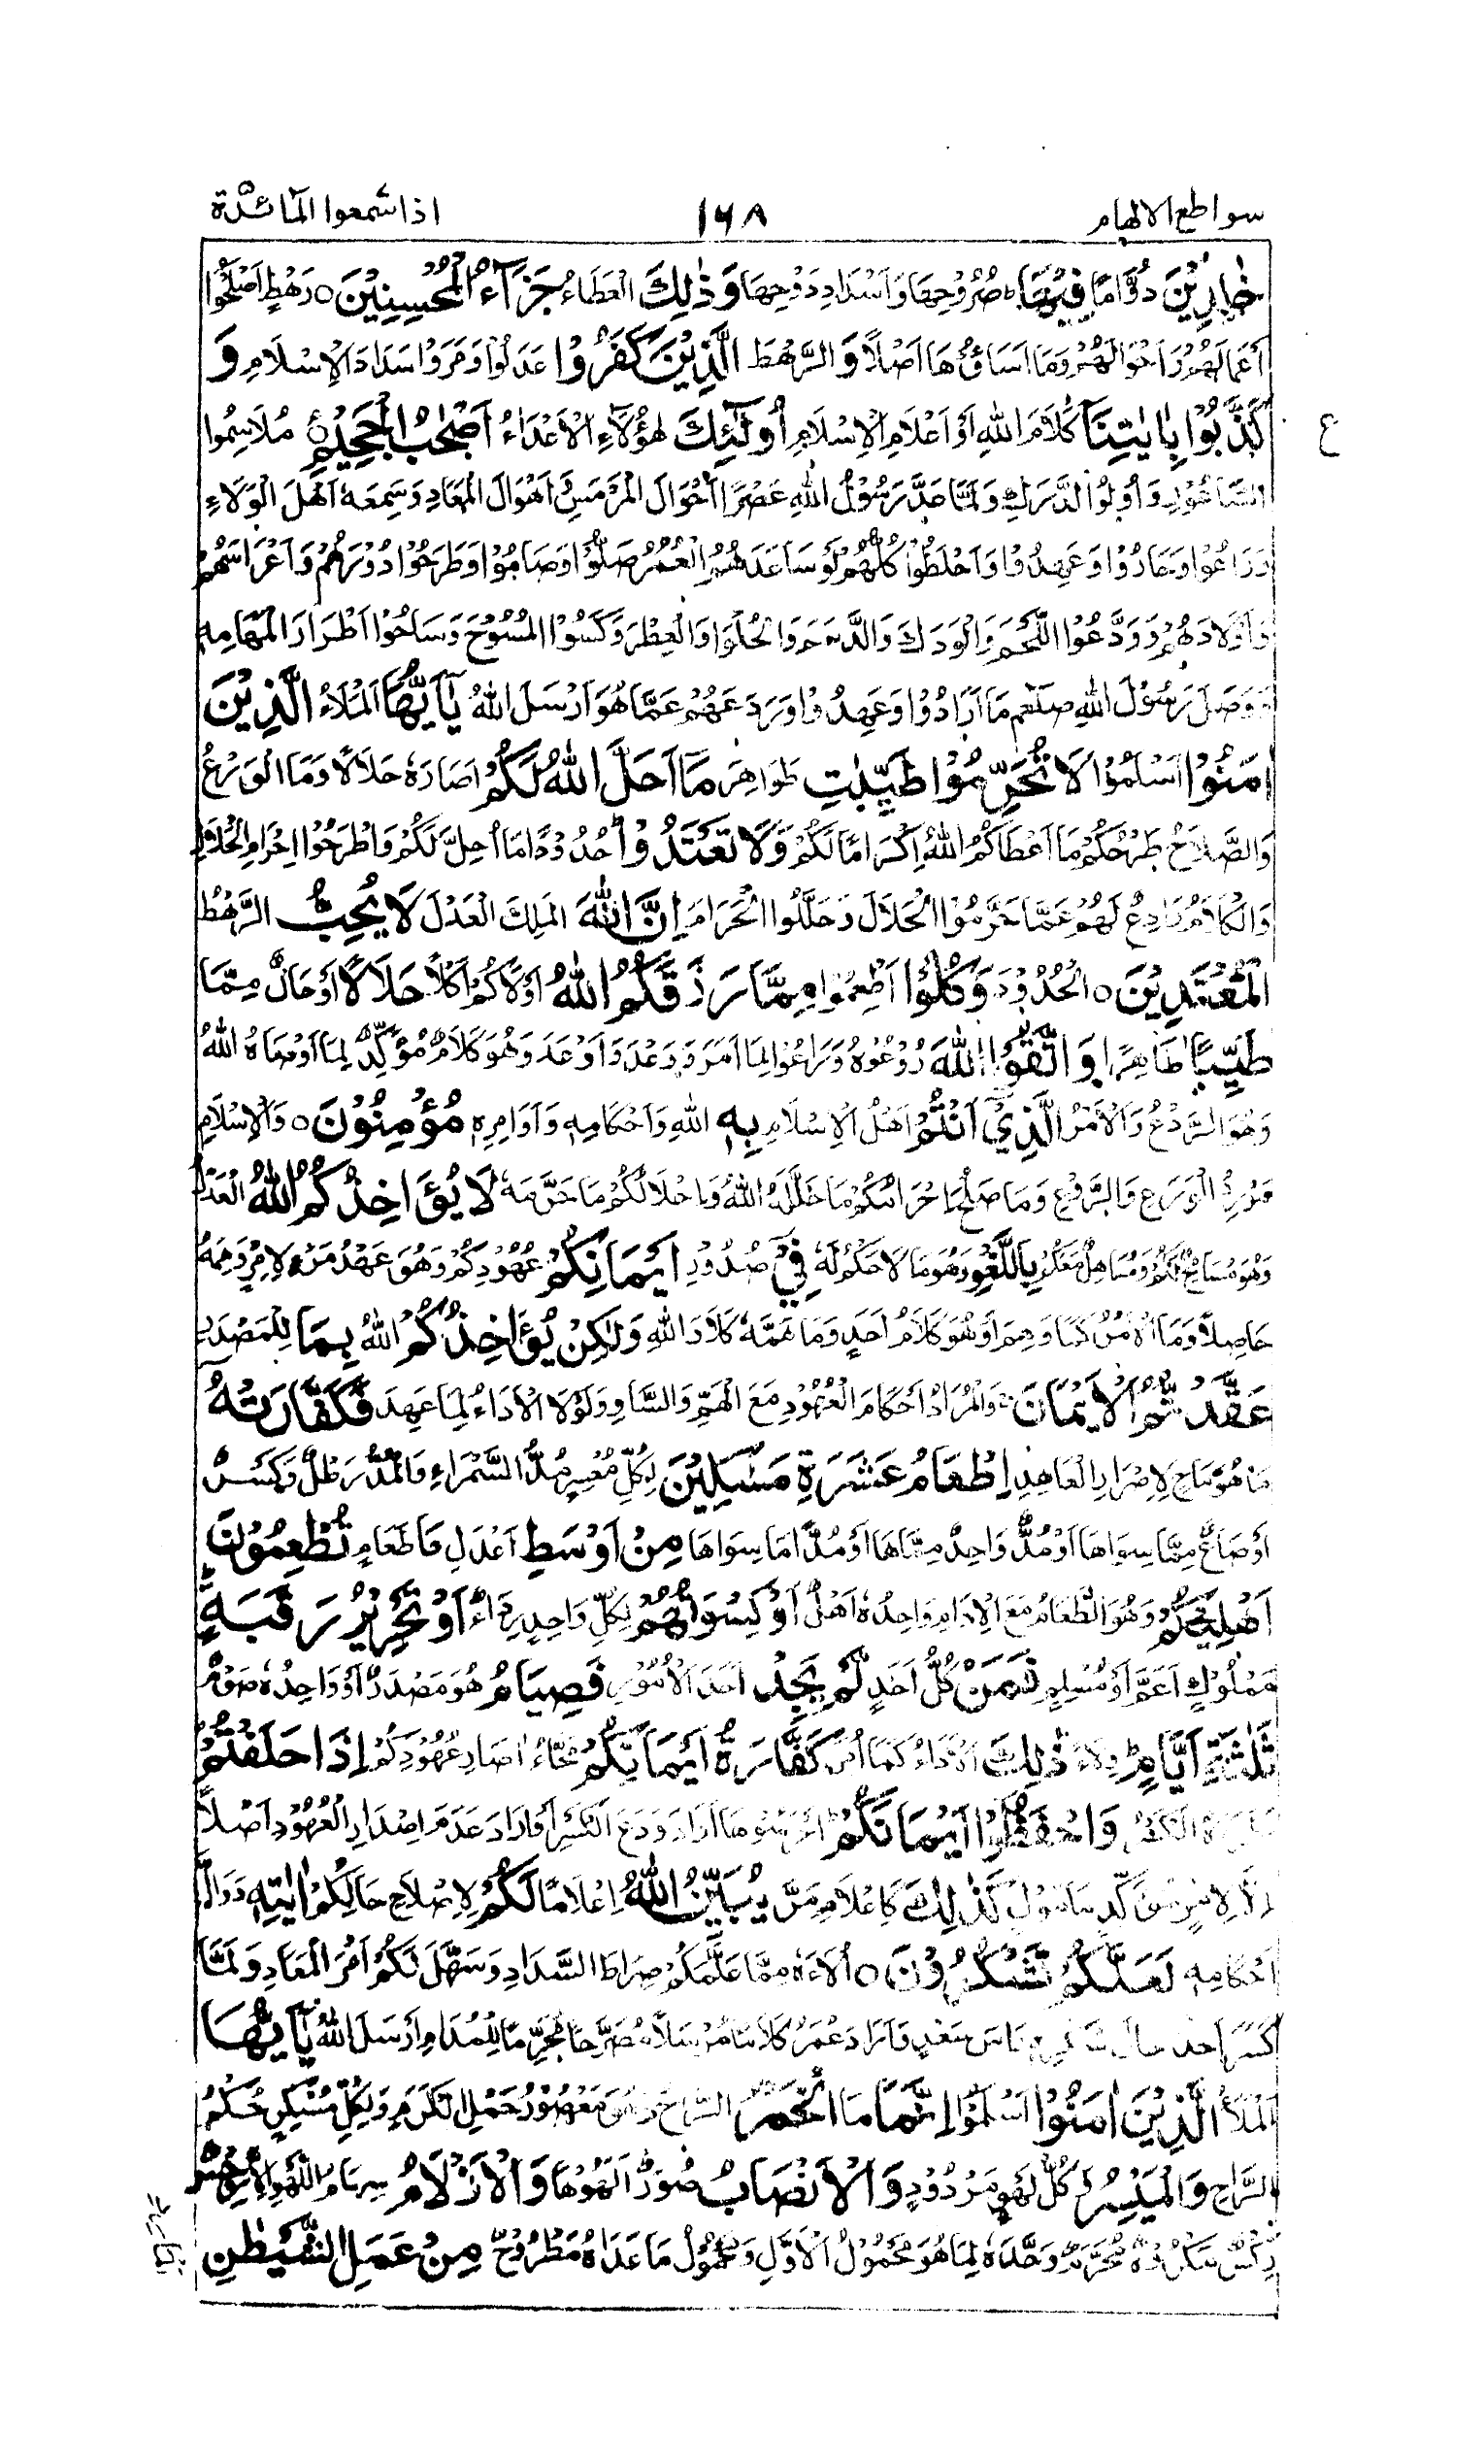 سواطع الالهام ١٦٨ اذا سمعوا المائدة
خٰلِدِيْنَ دَوَّامًا فِيْهَا صُرُوْحِهَا وَاَسْدَادِ دَوْحِهَا وَذٰلِكَ الْعَطَاءُ جَزَآءُ الْمُحْسِنِيْنَ ○ رَهْطٍ اَصْلَحُوْا
اَعْمَالَهُمْ وَاَحْوَالَهُمْ وَمَا اَسَاؤُهَا اَصْلًا وَالرَّهْطُ الَّذِيْنَ كَفَرُوْا عَدَلُوْا وَمَرَوْا سَدَادَ الْاِسْلَامِ وَ
كَذَّبُوْا بِاٰيٰتِنَا كَلَامَ اللهِ اَوْ اَعْلَامِ الْاِسْلَامِ اُولٰٓئِكَ هٰؤُلَاءِ الْاَعْدَاءُ اَصْحٰبُ الْجَحِيْمِ ○ مُلَاسِمُوا
السَّاعُوْرِ وَاُولُوا الدَّرَكِ وَلَمَّا حَدَّ رَسُوْلُ اللهِ عَصْرًا اَحْوَالَ الْمَرْمَسِ اَهْوَالَ الْمَعَادِ وَسَمِعَهُ اَهْلُ الْوَلَاءِ
وَرَاعُوْا وَحَارُوْا وَعَهِدُوْا وَاَحْلَطُوْا كُلُّهُمْ لَوْ سَاعَدَهُمُ الْعُمُرُ صَلَّوْا وَصَامُوْا وَطَرَحُوْا دُوْرَهُمْ وَاَعْرَاسَهُمْ
وَاَوْلَادَهُمْ وَوَدَّعُوا اللَّحْمَ وَالْوَدَكَ وَالدَّسَمَ وَالْحُلْوَا وَالْعِطْرَ وَكَسَوُا الْمُسُوْحَ وَسَاحُوْا اَطْرَارَ الْمَهَامِهِ
وَوَصَلَ رَسُوْلَ اللهِ صلعم مَا اَرَادُوْا وَعَهِدُوْا وَرَدَعَهُمْ عَمَّا هُوَ اَرْسَلَ اللهُ يٰٓاَيُّهَا الْمَلَاءُ الَّذِيْنَ
اٰمَنُوْا اَسْلَمُوْا لَا تُحَرِّمُوْا طَيِّبٰتِ طَوَاهِرَ مَآ اَحَلَّ اللهُ لَكُمْ اَصَارَهُ حَلَالًا وَمَا الْوَرَعُ
وَالصَّلَاحُ طَرْحُكُمْ مَا اَعْطَاكُمُ اللهُ اِكْرَامًا لَكُمْ وَلَا تَعْتَدُوْا حُدُوْدًا مَا اُحِلَّ لَكُمْ وَاطْرَحُوْا اِحْرَامَ الْحَلَالِ
وَالْكَلَامُ رَادِعٌ لَهُمْ عَمَّا حَرَّمُوا الْحَلَالَ وَحَلَّلُوا الْحَرَامَ اِنَّ اللهَ الْمَلِكَ الْعَدْلَ لَا يُحِبُّ الرَّهْطَ
الْمُعْتَدِيْنَ ○ الْحُدُوْدَ وَكُلُوْا اَطْعِمُوْا مِمَّا رَزَقَكُمُ اللهُ اَوْلَاكُمْ اَكْلًا حَلَالًا اَوْ حَالٌ مِمَّا
طَيِّبًا طَاهِرًا وَاتَّقُوا اللهَ رُوْعُوْهُ وَرَاعُوْا لِمَا اَمَرَ وَوَعَدَ وَاَوْعَدَ وَهُوَ كَلَامٌ مُؤَكِّدٌ لِمَا اَوْصَاهُ اللهُ
وَهُوَ الرَّدْعُ وَالْاَمْرُ الَّذِيْٓ اَنْتُمْ اَهْلَ الْاِسْلَامِ بِهٖ اللهِ وَاَحْكَامِهٖ وَاَوَامِرِهٖ مُؤْمِنُوْنَ ○ وَالْاِسْلَامِ
مَوْرِدُ الْوَرَعِ وَالرَّوْعِ وَمَا صَلَحَ اِحْرَامُكُمْ مَا حَلَّلَهُ اللهُ وَاِحْلَالُكُمْ مَا حَرَّمَهُ لَا يُؤَاخِذُكُمُ اللهُ الْعَدْلُ
وَهُوَ مُسَامِحٌ لَكُمْ وَمُسَاهِلٌ مَعَكُمْ بِاللَّغْوِ وَهُوَ مَا لَا حُكْمَ لَهُ فِيْٓ صُدُوْرِ اَيْمَانِكُمْ عُهُوْدِكُمْ وَهُوَ عَهْدُ مَرْءٍ لِاَمْرٍ وَهِمَهُ
حَاصِلًا وَمَا الْاَمْرُ كَمَا وَهِمَ اَوْ هُوَ كَلَامُ اَحَدٍ وَمَا هَمَّهُ كَلَا وَاللهِ وَلٰكِنْ يُؤَاخِذُكُمْ اللهُ بِمَا لِلْمَصْدَرِ
عَقَّدْتُّمُ الْاَيْمَانَ وَالْمُرَادُ اَحْكَامُ الْعُهُوْدِ مَعَ الْهَمِّ وَالسَّاوِ وَلَوْلَا الْاَدَاءُ لِمَا عَهِدَ فَكَفَّارَتُهٗٓ
مَا هُوَ مَاحٍ لِاِصْرَارِ الْعَاهِدِ اِطْعَامُ عَشَرَةِ مَسٰكِيْنَ لِكُلِّ مُعْسِرٍ مُدُّ السَّمْرَاءِ وَالْمُدُّ رَطْلٌ وَكَسْرٌ
اَوْ صَاعٌ مِمَّا سِوَاهَا اَوْ مُدٌّ وَاحِدٌ مِمَّاهَا اَوْ مُدٌّ اَمَا سِوَاهَا مِنْ اَوْسَطِ اَعْدَلِ مَا طَعَامٍ تُطْعِمُوْنَ
اَهْلِيْكُمْ وَهُوَ الطَّعَامُ مَعَ الْاِدَامِ وَاحِدُهُ اَهْلٌ اَوْ كِسْوَتُهُمْ لِكُلِّ وَاحِدٍ رِدَاءٌ اَوْ تَحْرِيْرُ رَقَبَةٍ
مَمْلُوْكٍ اَعَمَّ اَوْ مُسْلِمٍ فَمَنْ كُلُّ اَحَدٍ لَّمْ يَجِدْ اَحَدَ الْاُمُوْرِ فَصِيَامُ هُوَ مَصْدَرٌ اَوْ وَاحِدُهُ صَوْمٌ
ثَلٰثَةِ اَيَّامٍ وِلَاءً ذٰلِكَ الْاَدَاءُ كَمَا اُمِرَ كَفَّارَةُ اَيْمَانِكُمْ مَحَّاءُ اٰصَارِ عُهُوْدِكُمْ اِذَا حَلَفْتُمْ
وَاحْفَظُوْٓا اَيْمَانَكُمْ اَرَادَ وَدَعَ الْكَسْرَ اَوْ اَرَادَ عَدَمَ اِصْدَارِ الْعُهُوْدِ اَصْلًا
كَذٰلِكَ كَاِعْلَامٍ مَرَّ يُبَيِّنُ اللهُ اِعْلَامًا لَكُمْ لِاِصْلَاحِ حَالِكُمْ اٰيٰتِهٖ دَوَالَّ
اَحْكَامِهٖ لَعَلَّكُمْ تَشْكُرُوْنَ ○ اٰلَاءَهُ مِمَّا عَلَّمَكُمْ صِرَاطَ السَّدَادِ وَسَهَّلَ لَكُمْ اَمْرَ الْمَعَادِ وَلَمَّا
كَسَرَ اَحَدٌ سَعْدٍ وَاَرَادَ عُمَرُ كَلَامًا مُرْسَلًا مُصَرِّحًا مُحَرِّمًا لِلْمُدَامِ اَرْسَلَ اللهُ يٰٓاَيُّهَا
الْمَلَأُ الَّذِيْنَ اٰمَنُوْٓا اَسْلَمُوْا اِنَّمَا مَا الْخَمْرُ الرَّاحُ وَهُوَ مَعْصُوْرُ حَمْلِ الْكَرْمِ وَلِكُلِّ مُسْكِرٍ حُكْمُ
الرَّاحِ وَالْمَيْسِرُ كُلُّ لَهْوٍ مَرْدُوْدٍ وَالْاَنْصَابُ صُوَرٌ اَلَّهُوْهَا وَالْاَزْلَامُ سِهَامُ اللَّهْوِ
رِجْسٌ مَكْرُوْهٌ مُحَرَّمٌ وَحَّدَهُ لِمَا هُوَ مَحْمُوْلُ الْاَوَّلِ وَمَحْمُوْلُ مَا عَدَاهُ مَطْرُوْحٌ مِنْ عَمَلِ الشَّيْطٰنِ
ع